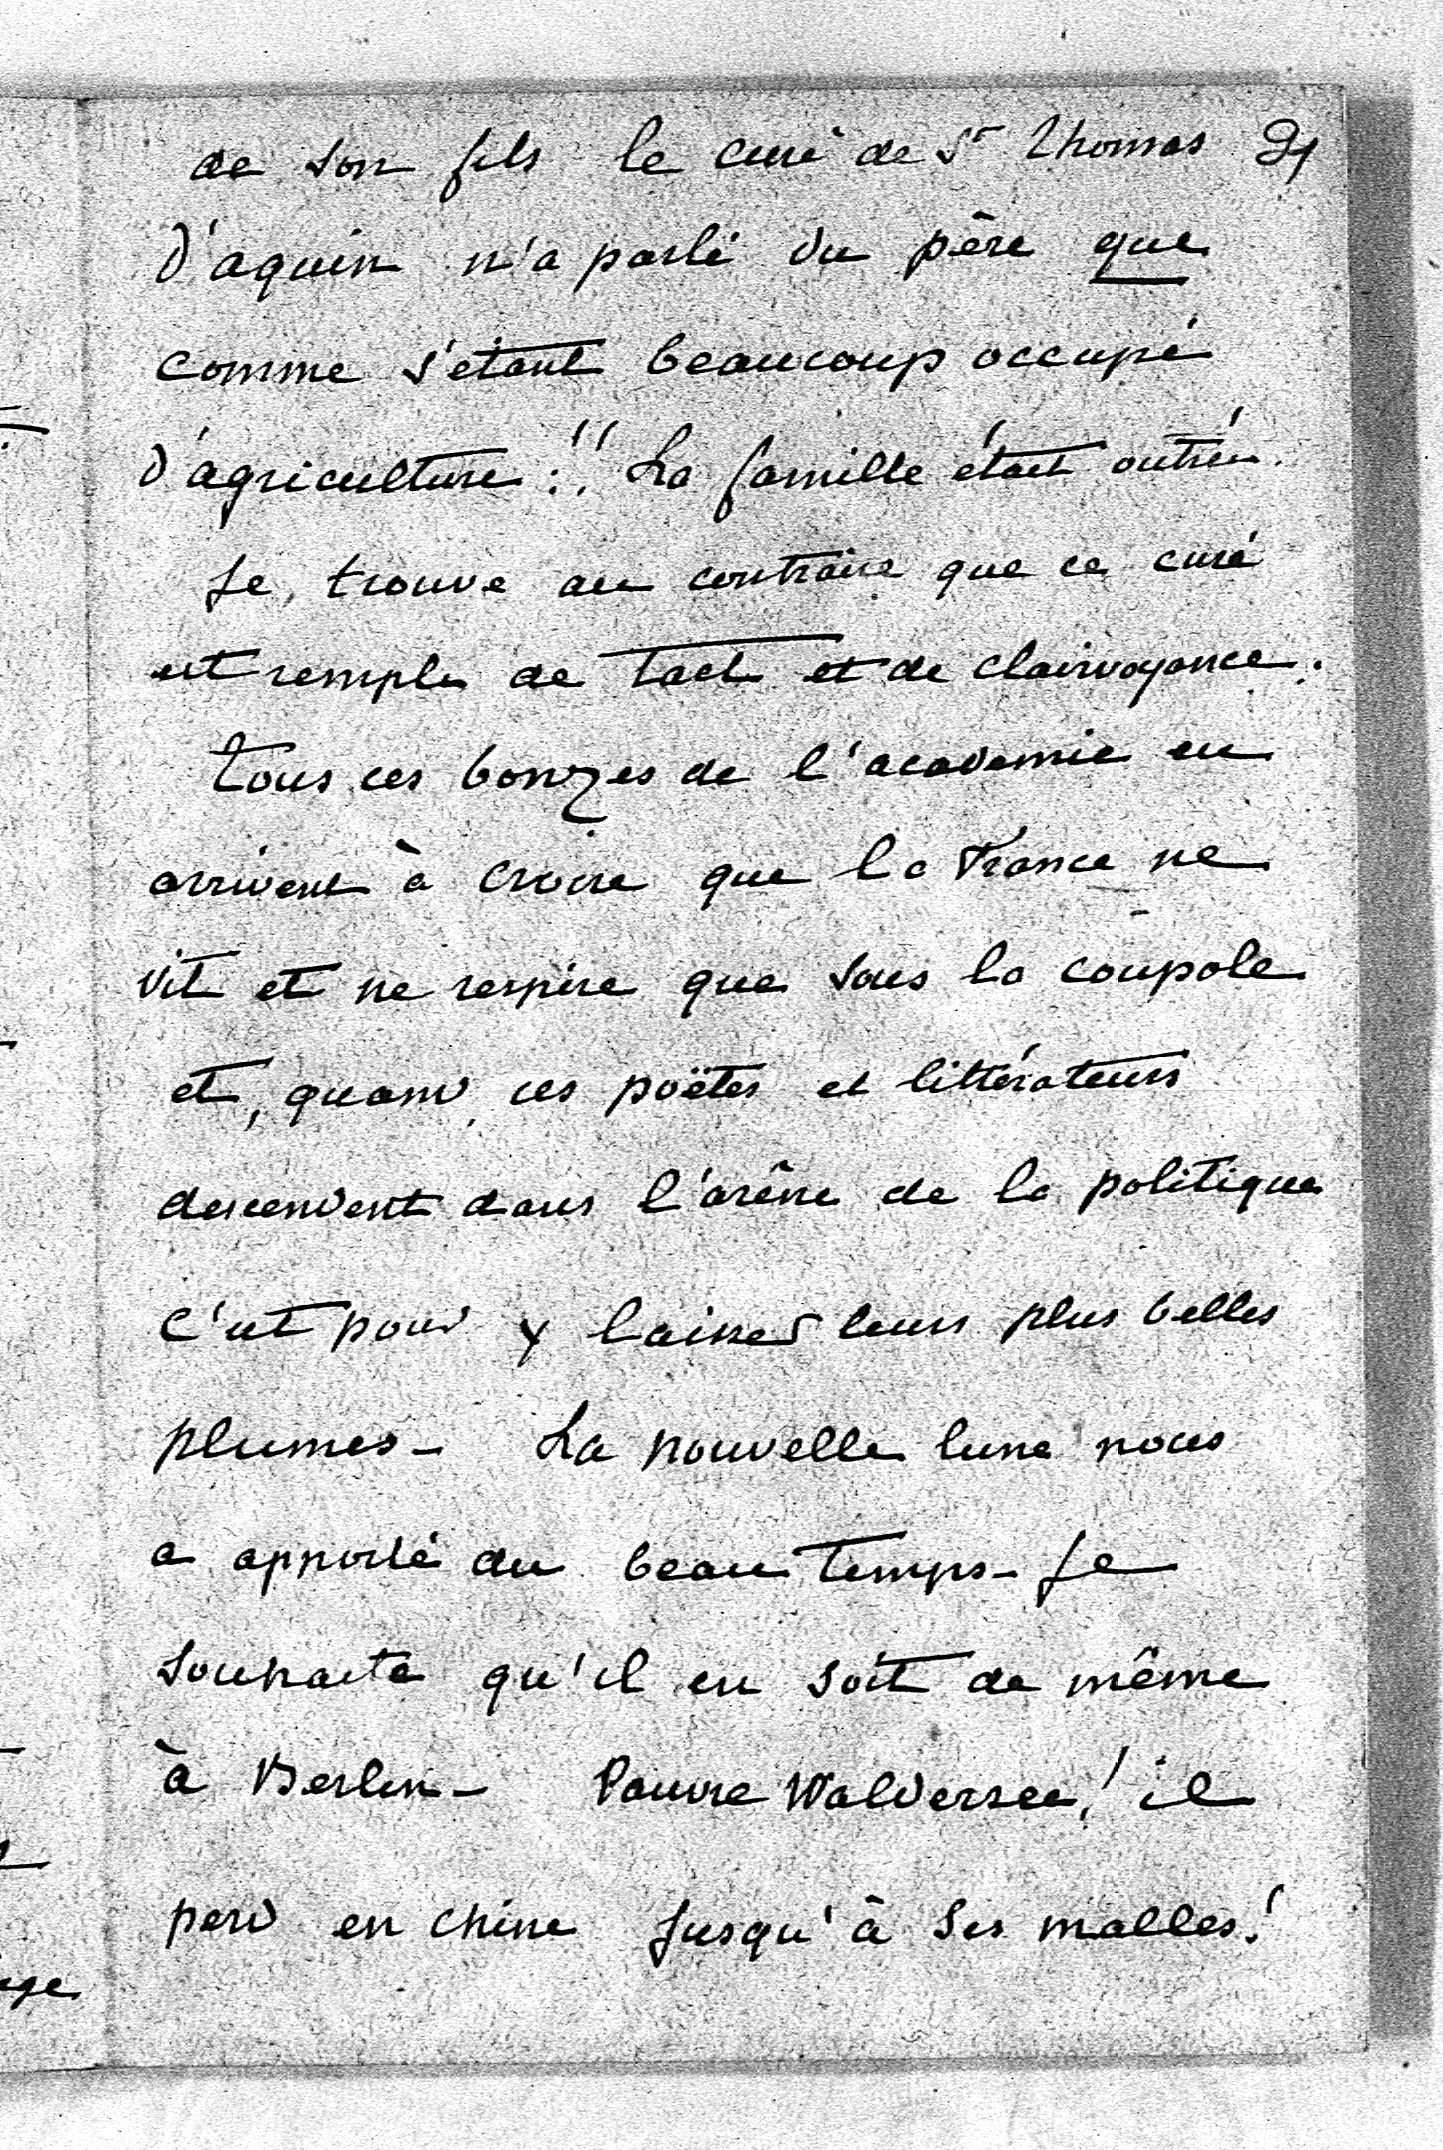 de son fils le curé de St Thomas 21
d'aquin n'a parlé du père que
comme s'étant beaucoup occupé
d'agriculture !! La famille était outrée.
Je trouve au contraire que ce curé
est rempli de tact et de clairvoyance.
Tous ces bonzes de l'academie en
arrivent à croire que la France ne
vit et ne respire que sous la coupole
et, quand, ces poëtes et littérateurs
descendent dans l'arêne de la politique
c'est pour y laisser leurs plus belles
plumes - La nouvelle lune nous
a apporté du beau temps - Je
souhaite qu'il en soit de même
à Berlin - Pauvre Waldersee ! il
perd en chine jusqu'à ses malles !